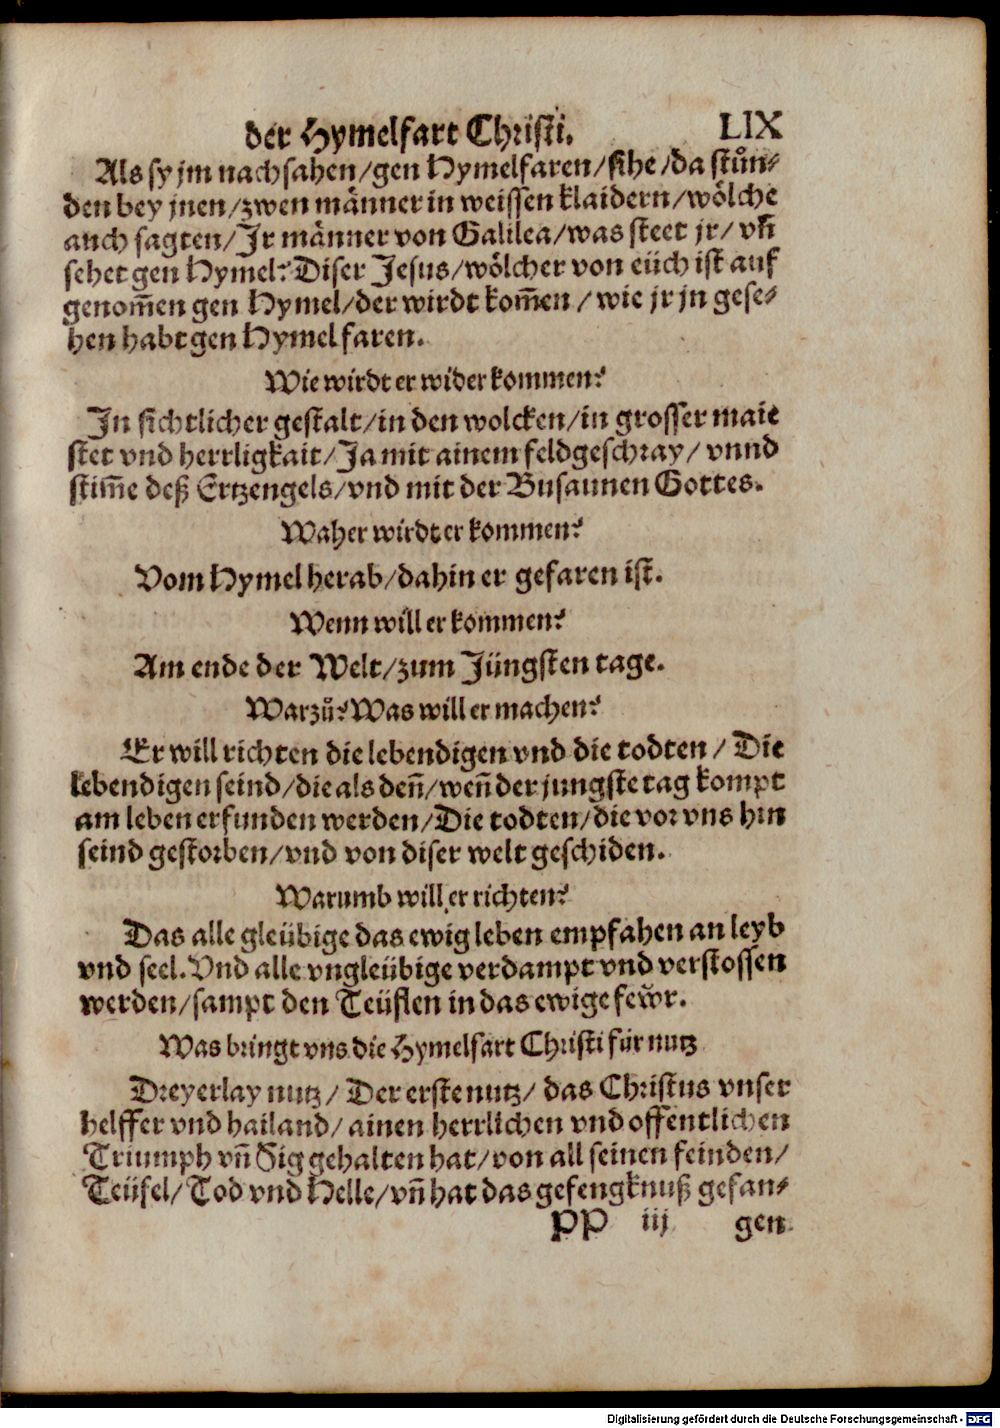 der Hymelfart Christi. LIX
Als sy jm nachsahen/gen Hymelfaren/sihe/da stůn⸗
den bey jnen/zwen männer in weissen klaidern/wölche
auch sagten/Jr männer von Galilea/was steet jr/ vn̄
sehet gen Hymel? Diser Jesus/wölcher von eüch ist auf
genom̄en gen Hymel/der wirdt kom̄en/wie jr jn gese⸗
hen habt gen Hymel faren.
Wie wirdt er wider kommen?
Jn sichtlicher gestalt/in den wolcken/in grosser maie
stet vnd herrligkait/Ja mit ainem feldgeschray/ vnnd
stim̄e deß Ertzengels/vnd mit der Busaunen Gottes.
Waher wirdt er kommen?
Vom Hymel herab/dahin er gefaren ist.
Wenn will er kommen?
Am ende der Welt/zum Jüngsten tage.
Warzů? Was will er machen?
Er will richten die lebendigen vnd die todten/ Die
lebendigen seind/die als den̄/wen̄ der jungste tag kompt
am leben erfunden werden/Die todten/die vor vns hin
seind gestorben/vnd von diser welt geschiden.
Warumb will er richten?
Das alle gleübige das ewig leben empfahen an leyb
vnd seel. Vnd alle vngleübige verdampt vnd verstossen
werden/sampt den Teüflen in das ewige fewr.
Was bringt vns die Hymelfart Christi für nutz
Dreyerlay nutz/ Der erste nutz/ das Christus vnser
helffer vnd hailand/ ainen herrlichen vnd offentlichen
Triumph vn̄ Sig gehalten hat/von all seinen feinden/
Teüfel/Tod vnd Helle/vn̄ hat das gefengknuß gefan⸗
PP iij gen
Digitalisierung gefördert durch die Deutsche Forschungsgemeinschaft - DFG